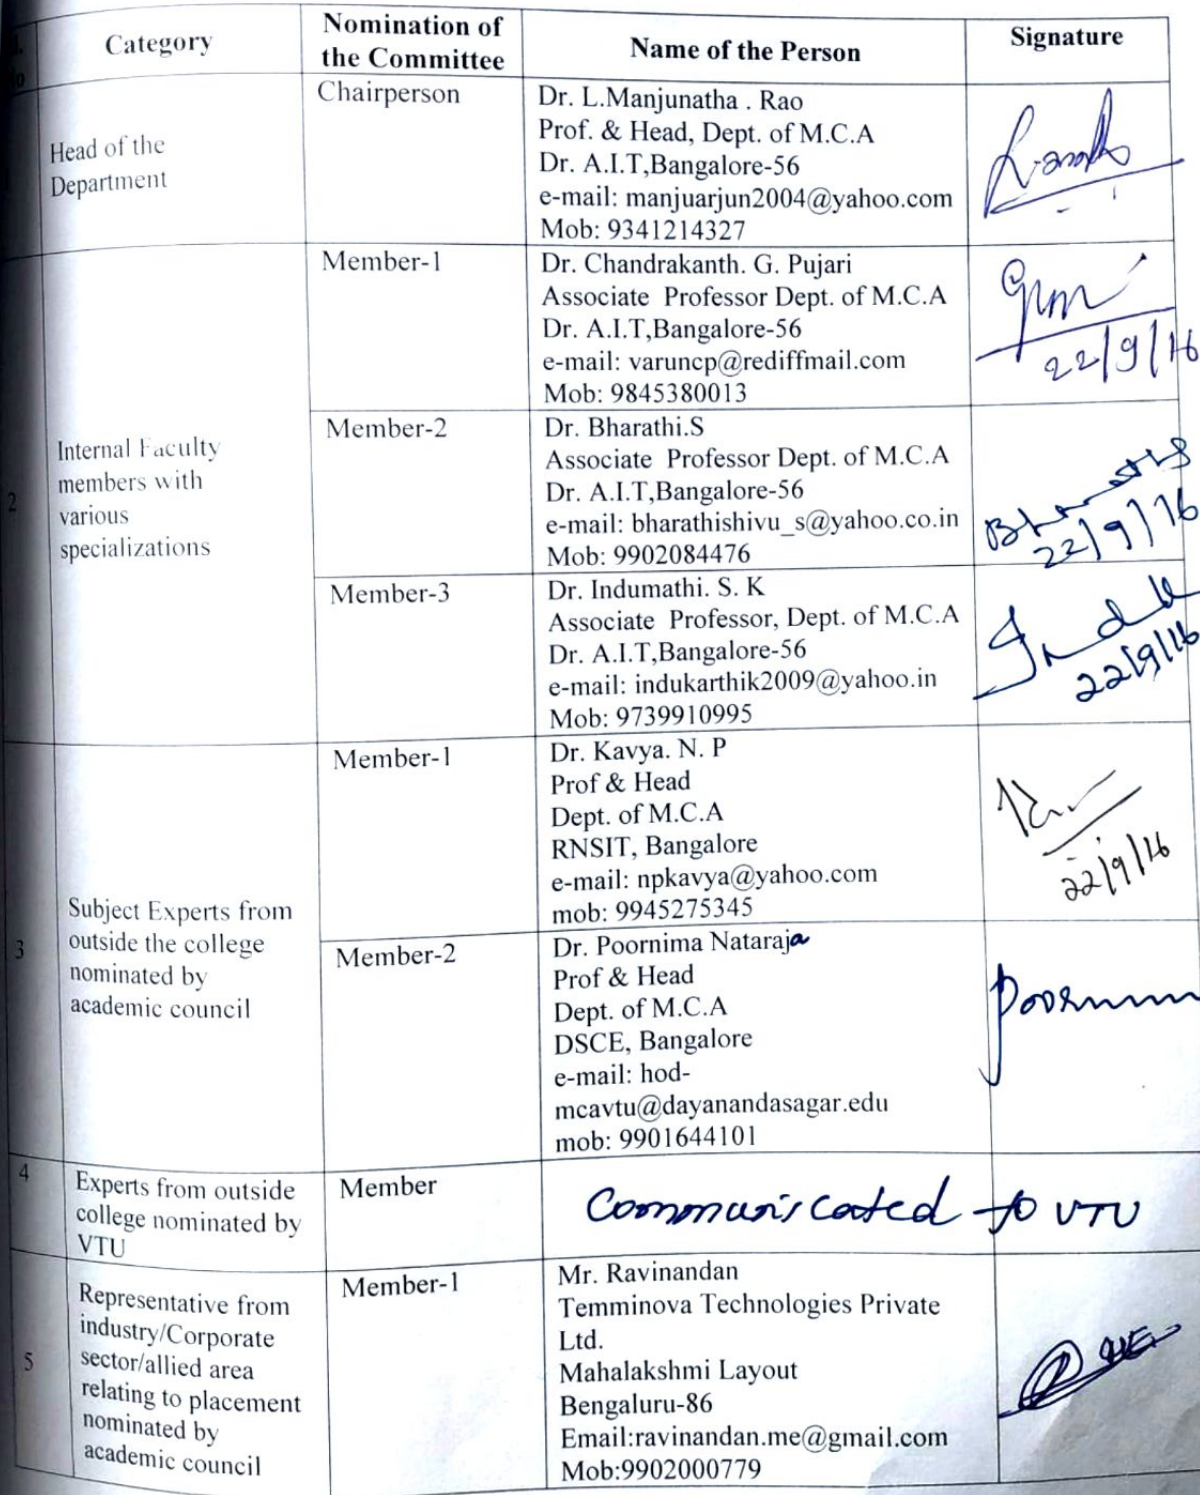 Category
Nomination of
the Committee
Name of the Person
Signature
Head of the
Department
Chairperson
Dr. L.Manjunatha . Rao
Prof. & Head, Dept. of M.C.A
Dr. A.I.T,Bangalore-56
e-mail: manjuarjun2004@yahoo.com
Mob: 9341214327
2
Internal Faculty
members with
various
specializations
Member-1
Dr. Chandrakanth. G. Pujari
Associate Professor Dept. of M.C.A
Dr. A.I.T,Bangalore-56
e-mail: varuncp@rediffmail.com
Mob: 9845380013
22/9/16
Member-2
Dr. Bharathi.S
Associate Professor Dept. of M.C.A
Dr. A.I.T,Bangalore-56
e-mail: bharathishivu_s@yahoo.co.in
Mob: 9902084476
22/9/16
Member-3
Dr. Indumathi. S. K
Associate Professor, Dept. of M.C.A
Dr. A.I.T,Bangalore-56
e-mail: indukarthik2009@yahoo.in
Mob: 9739910995
22/9/16
3
Subject Experts from
outside the college
nominated by
academic council
Member-1
Dr. Kavya. N. P
Prof & Head
Dept. of M.C.A
RNSIT, Bangalore
e-mail: npkavya@yahoo.com
mob: 9945275345
22/9/16
Member-2
Dr. Poornima Nataraja
Prof & Head
Dept. of M.C.A
DSCE, Bangalore
e-mail: hod-
mcavtu@dayanandasagar.edu
mob: 9901644101
4
Experts from outside
college nominated by
VTU
Member
Communicated to VTU
5
Representative from
industry/Corporate
sector/allied area
relating to placement
nominated by
academic council
Member-1
Mr. Ravinandan
Temminova Technologies Private
Ltd.
Mahalakshmi Layout
Bengaluru-86
Email:ravinandan.me@gmail.com
Mob:9902000779